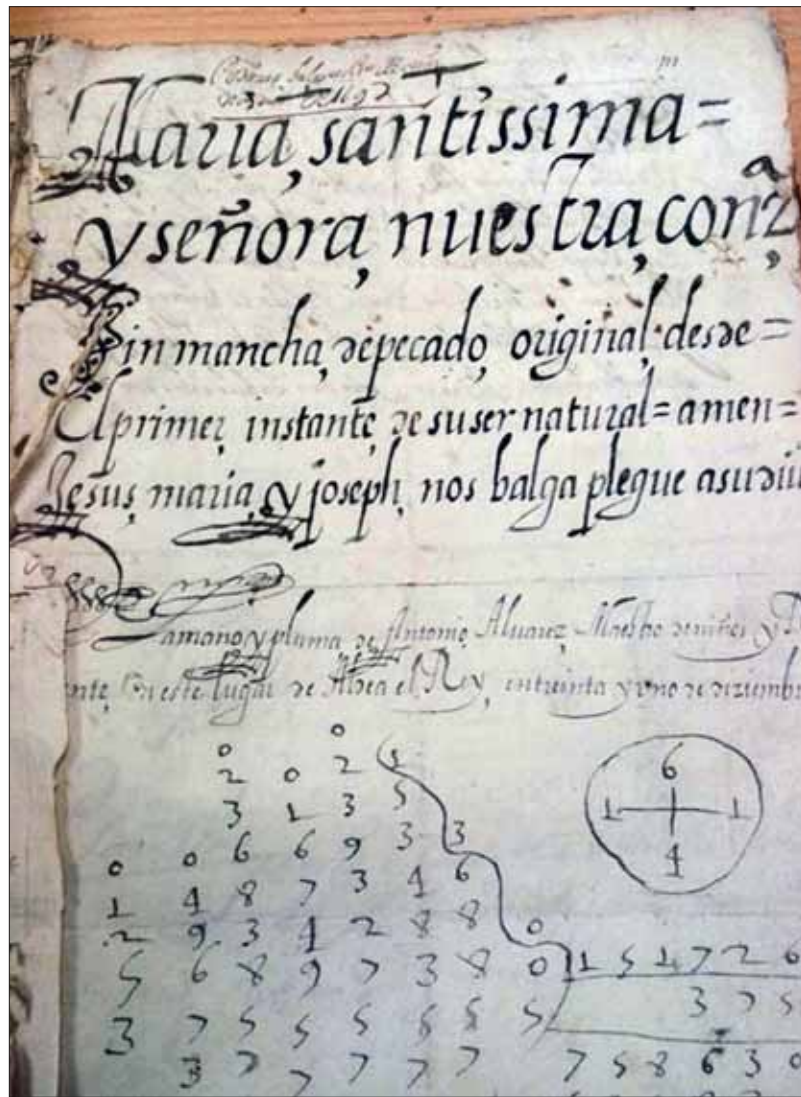 Maria, santissima=
y señora, nuestra, conz̃ᵃ
Sin mancha, depecado, original, desde=
El primer, instante, de su ser natural= amen=
Jesus, maria, y joseph, nos balga plegue asudiu
amano y pluma, de Antonio, Aluarez, Maestro de niños, y
nte, En este lugar de Aldea el Rey, entreinta y uno de diziembr
0 0
2 0 2 1
3 1 3 5
0 0 6 6 9 3 3
1 4 8 7 3 4 6
2 9 3 4 2 8 8 0
5 6 8 9 7 3 8 0 1 5 1 7 2 6
3 7 5 5 5 5 5 5 3 7 5
3 7 7 7 7 7 7 5 8 6 3 0
6
1 1
4